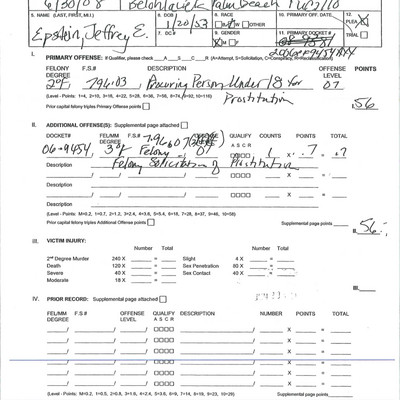 6/30/08 Belohlavek Palm Beach
5. NAME (LAST, FIRST, M.I.) 6. DOB 8. RACE 10. PRIMARY OFF. DATE 12.
1/20/53 W OTHER PLEA
Epstein, Jeffrey E. 7. DC# 9. GENDER 11. PRIMARY DOCKET #
M F TRIAL
I. PRIMARY OFFENSE: If Qualifier, please check A S C R (A=Attempt, S=Solicitation, C=Conspiracy, R=Reclassification)
FELONY DEGREE F.S.# DESCRIPTION OFFENSE LEVEL POINTS
2° 796.03 Procuring Person Under 18 for 07
Prostitution 56
(Level - Points: 1=4, 2=10, 3=16, 4=22, 5=28, 6=36, 7=56, 8=74, 9=92, 10=116)
Prior capital felony triples Primary Offense points
II. ADDITIONAL OFFENSE(S): Supplemental page attached
DOCKET# FEL/MM DEGREE F.S.# OFFENSE LEVEL QUALIFY COUNTS POINTS TOTAL
A S C R
06-9454 3° 796.07 07 1 X .7 = .7
Description Felony Solicitation of Prostitution
/ / / X =
Description
/ / / X =
Description
(Level - Points: M=0.2, 1=0.7, 2=1.2, 3=2.4, 4=3.6, 5=5.4, 6=18, 7=28, 8=37, 9=46, 10=58)
Prior capital felony triples Additional Offense points Supplemental page points
II. 56
III. VICTIM INJURY:
Number Total Number Total
2nd Degree Murder 240 X = Slight 4 X =
Death 120 X = Sex Penetration 80 X =
Severe 40 X = Sex Contact 40 X =
Moderate 18 X =
IV. PRIOR RECORD: Supplemental page attached
FEL/MM DEGREE F.S.# OFFENSE LEVEL QUALIFY DESCRIPTION NUMBER POINTS TOTAL
A S C R
/ / X =
/ / X =
/ / X =
/ / X =
/ / X =
/ / X =
(Level - Points: M=0.2, 1=0.5, 2=0.8, 3=1.6, 4=2.4, 5=3.6, 6=9, 7=14, 8=19, 9=23, 10=29)